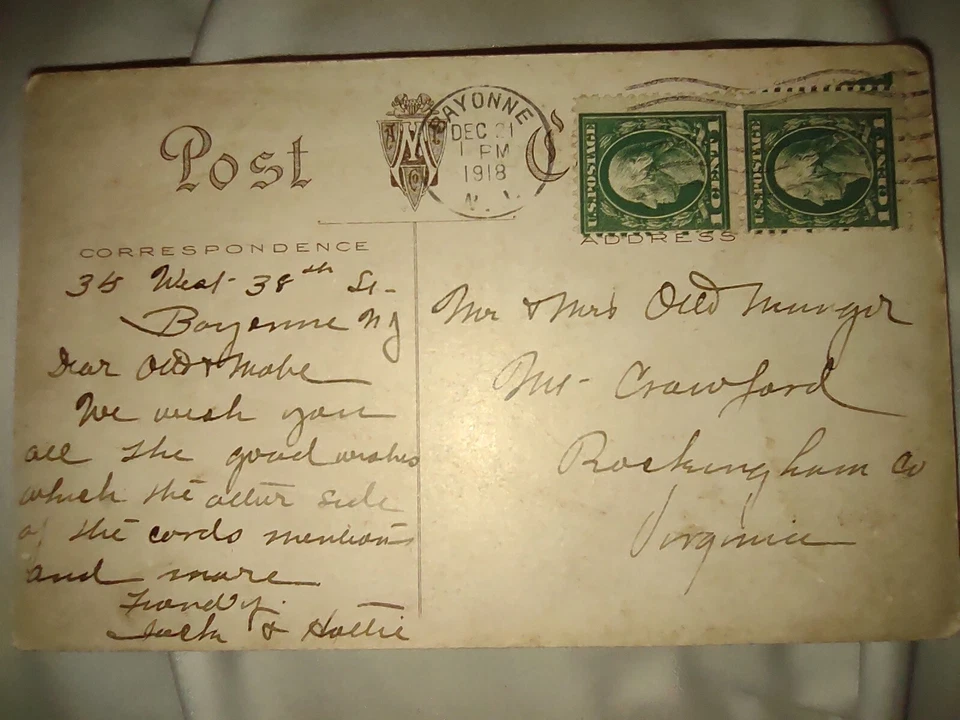 Post C
BAYONNE
DEC 21
1 PM
1918
N.
U.S.POSTAGE 1 CENT 1
U.S.POSTAGE 1 CENT 1
CORRESPONDENCE
ADDRESS
West 38th St-
Bayonne NJ
Dear Olld & Mabe
We wish you
all the good wishes
which the other side
of the cards mentions
and more
& Hattie
Mr & Mrs Olld Munger
Mt- Crawford
Rockingham Co
Virginia